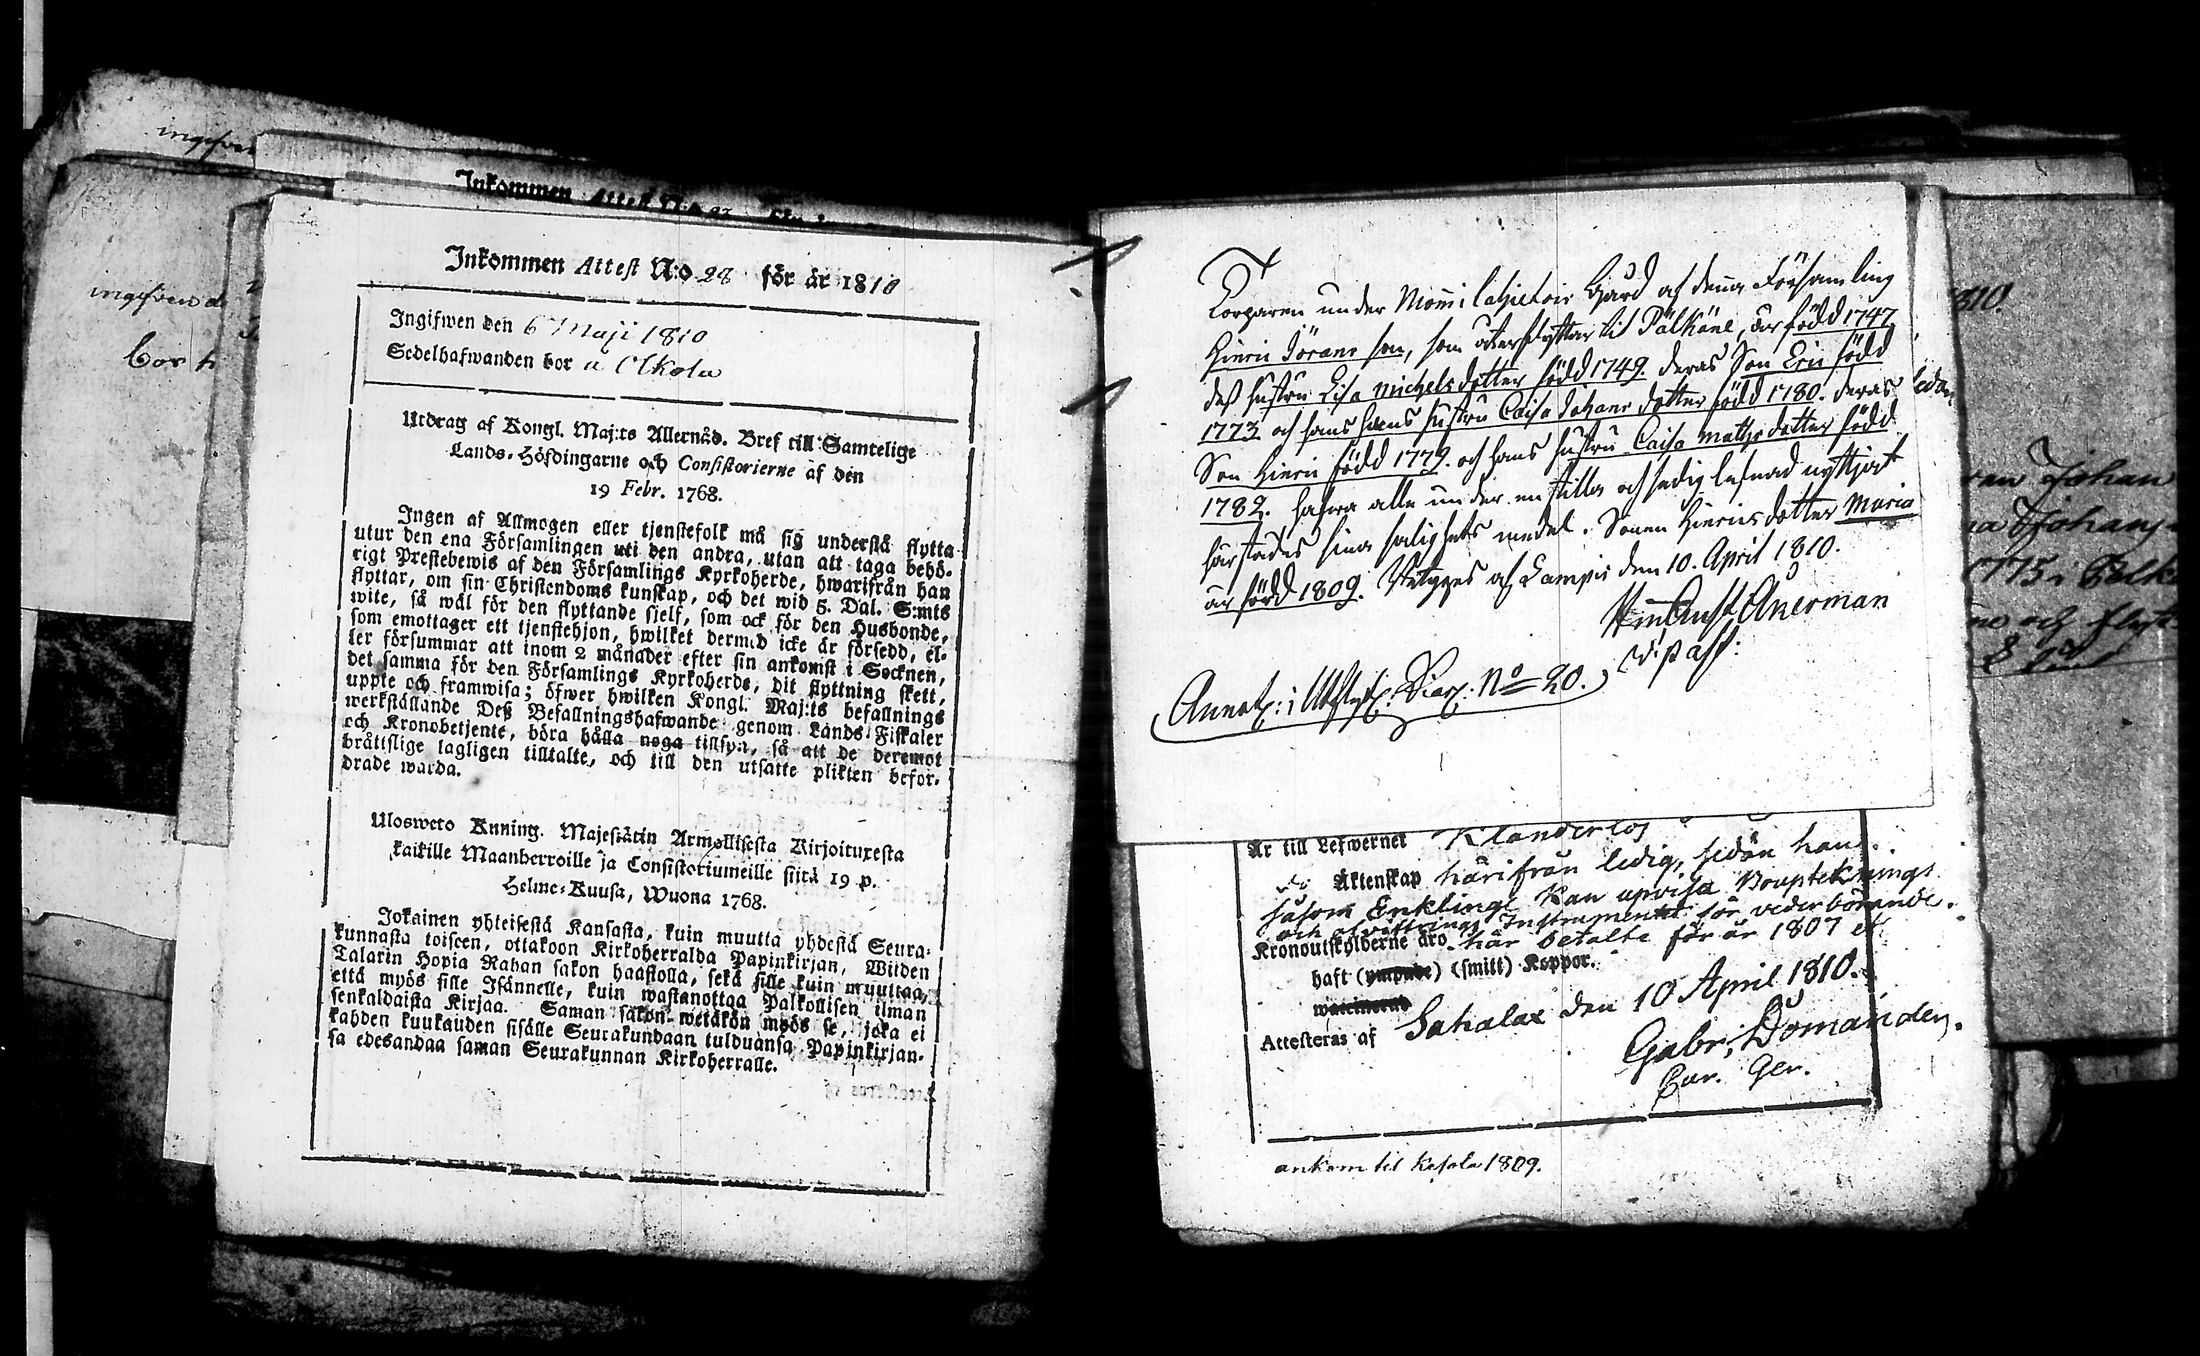 ingifven
ingifvend
bor h
Inkommen Attest N:o 27
Inkommen Attest N:o 28 för år 1810
Ingifwen den 6 Maji 1810
Sedelhafwanden bor i Olkola
Utdrag af Kongl. Maj:ts Allernåd. Bref till Samtelige
Lands-Höfdingarne och Consistorierne af den
19 Febr. 1768.
Ingen af Allmogen eller tjenstefolk må sig understå flytta
utur den ena Församlingen uti den andra, utan att taga behö-
rigt Prestebewis af den Församlings Kyrkoherde, hwarifrån han
flyttar, om sin Christendoms kunskap, och det wid 5. Dal. S:mts
wite, så wäl för den flyttande sjelf, som ock för den Husbonde,
som emottager ett tjenstehjon, hwilket dermed icke är försedd, el-
ler försummar att inom 2 månader efter sin ankomst i Socknen,
det samma för den Församlings Kyrkoherde, dit flyttning skett,
uppte och framwisa; öfwer hwilken Kongl. Maj:ts befallnings
werkställande Deß Befallningshafwande genom Lands Fiskaler
och Kronobetjente, böra hålla noga tillsyn, så att de deremot
bråttslige lagligen tilltalte, och till den utsatte plikten befor-
drade warda.
Ulosweto Kuning. Majestätin Armollisesta Kirjoituxesta
kaikille Maanherroille ja Consistoriumeille siitä 19 p.
Helme-Kuusa, Wuona 1768.
Jokainen yhteisestä Kansasta, kuin muutta yhdestä Seura-
kunnasta toiseen, ottakoon Kirkoherralda Papinkirjan, Wiiden
Talarin Hopia Rahan sakon haastolla, sekä sille kuin muuttaa,
että myös sille Isännelle, kuin wastanottaa Palkollisen ilman
senkaldaista Kirjaa. Saman sakon wetäkön myös se, joka ei
kahden kuukauden sisälle Seurakundaan tulduansa Papinkirjan-
sa edesandaa saman Seurakunnan Kirkoherralle.
Torparen under Mommila Hietois Gård af denna Församling
Hinric Jörans son, som återflyttar til Pälkäne, är född 1747,
deß hustru Lisa Michels dotter född 1749. deras Son Eric född
1773 och hans hustru Caisa Johans dotter född 1780. deras
Son Hinric född 1779. och hans hustru Caisa Matts dotter född
1782. hafwa alla under en stilla och sedig lefnad nyttjat
härstädes sina salighets medel. Sonen Hinrics dotter Maria
är född 1809. Betygas af Lampis den 10 April 1810.
Akerman
Annot: i Utflytt. Diar: No 20.
Är till Lefwernet Klanderlös
Äktenskap härifrån ledig, sedan han
såsom Enkling Kan upvisa Bouptecknings
och afvittrings Instrument för vederbörande.
Kronoutskylderne äro här betalte för år 1807
haft (smitt) Koppor.
Attesteras af Sahalax den 10 April 1810.
Gabr. Domander
ankom til Kesola 1809.
1810.
Johan
Johans
1775
och flytt